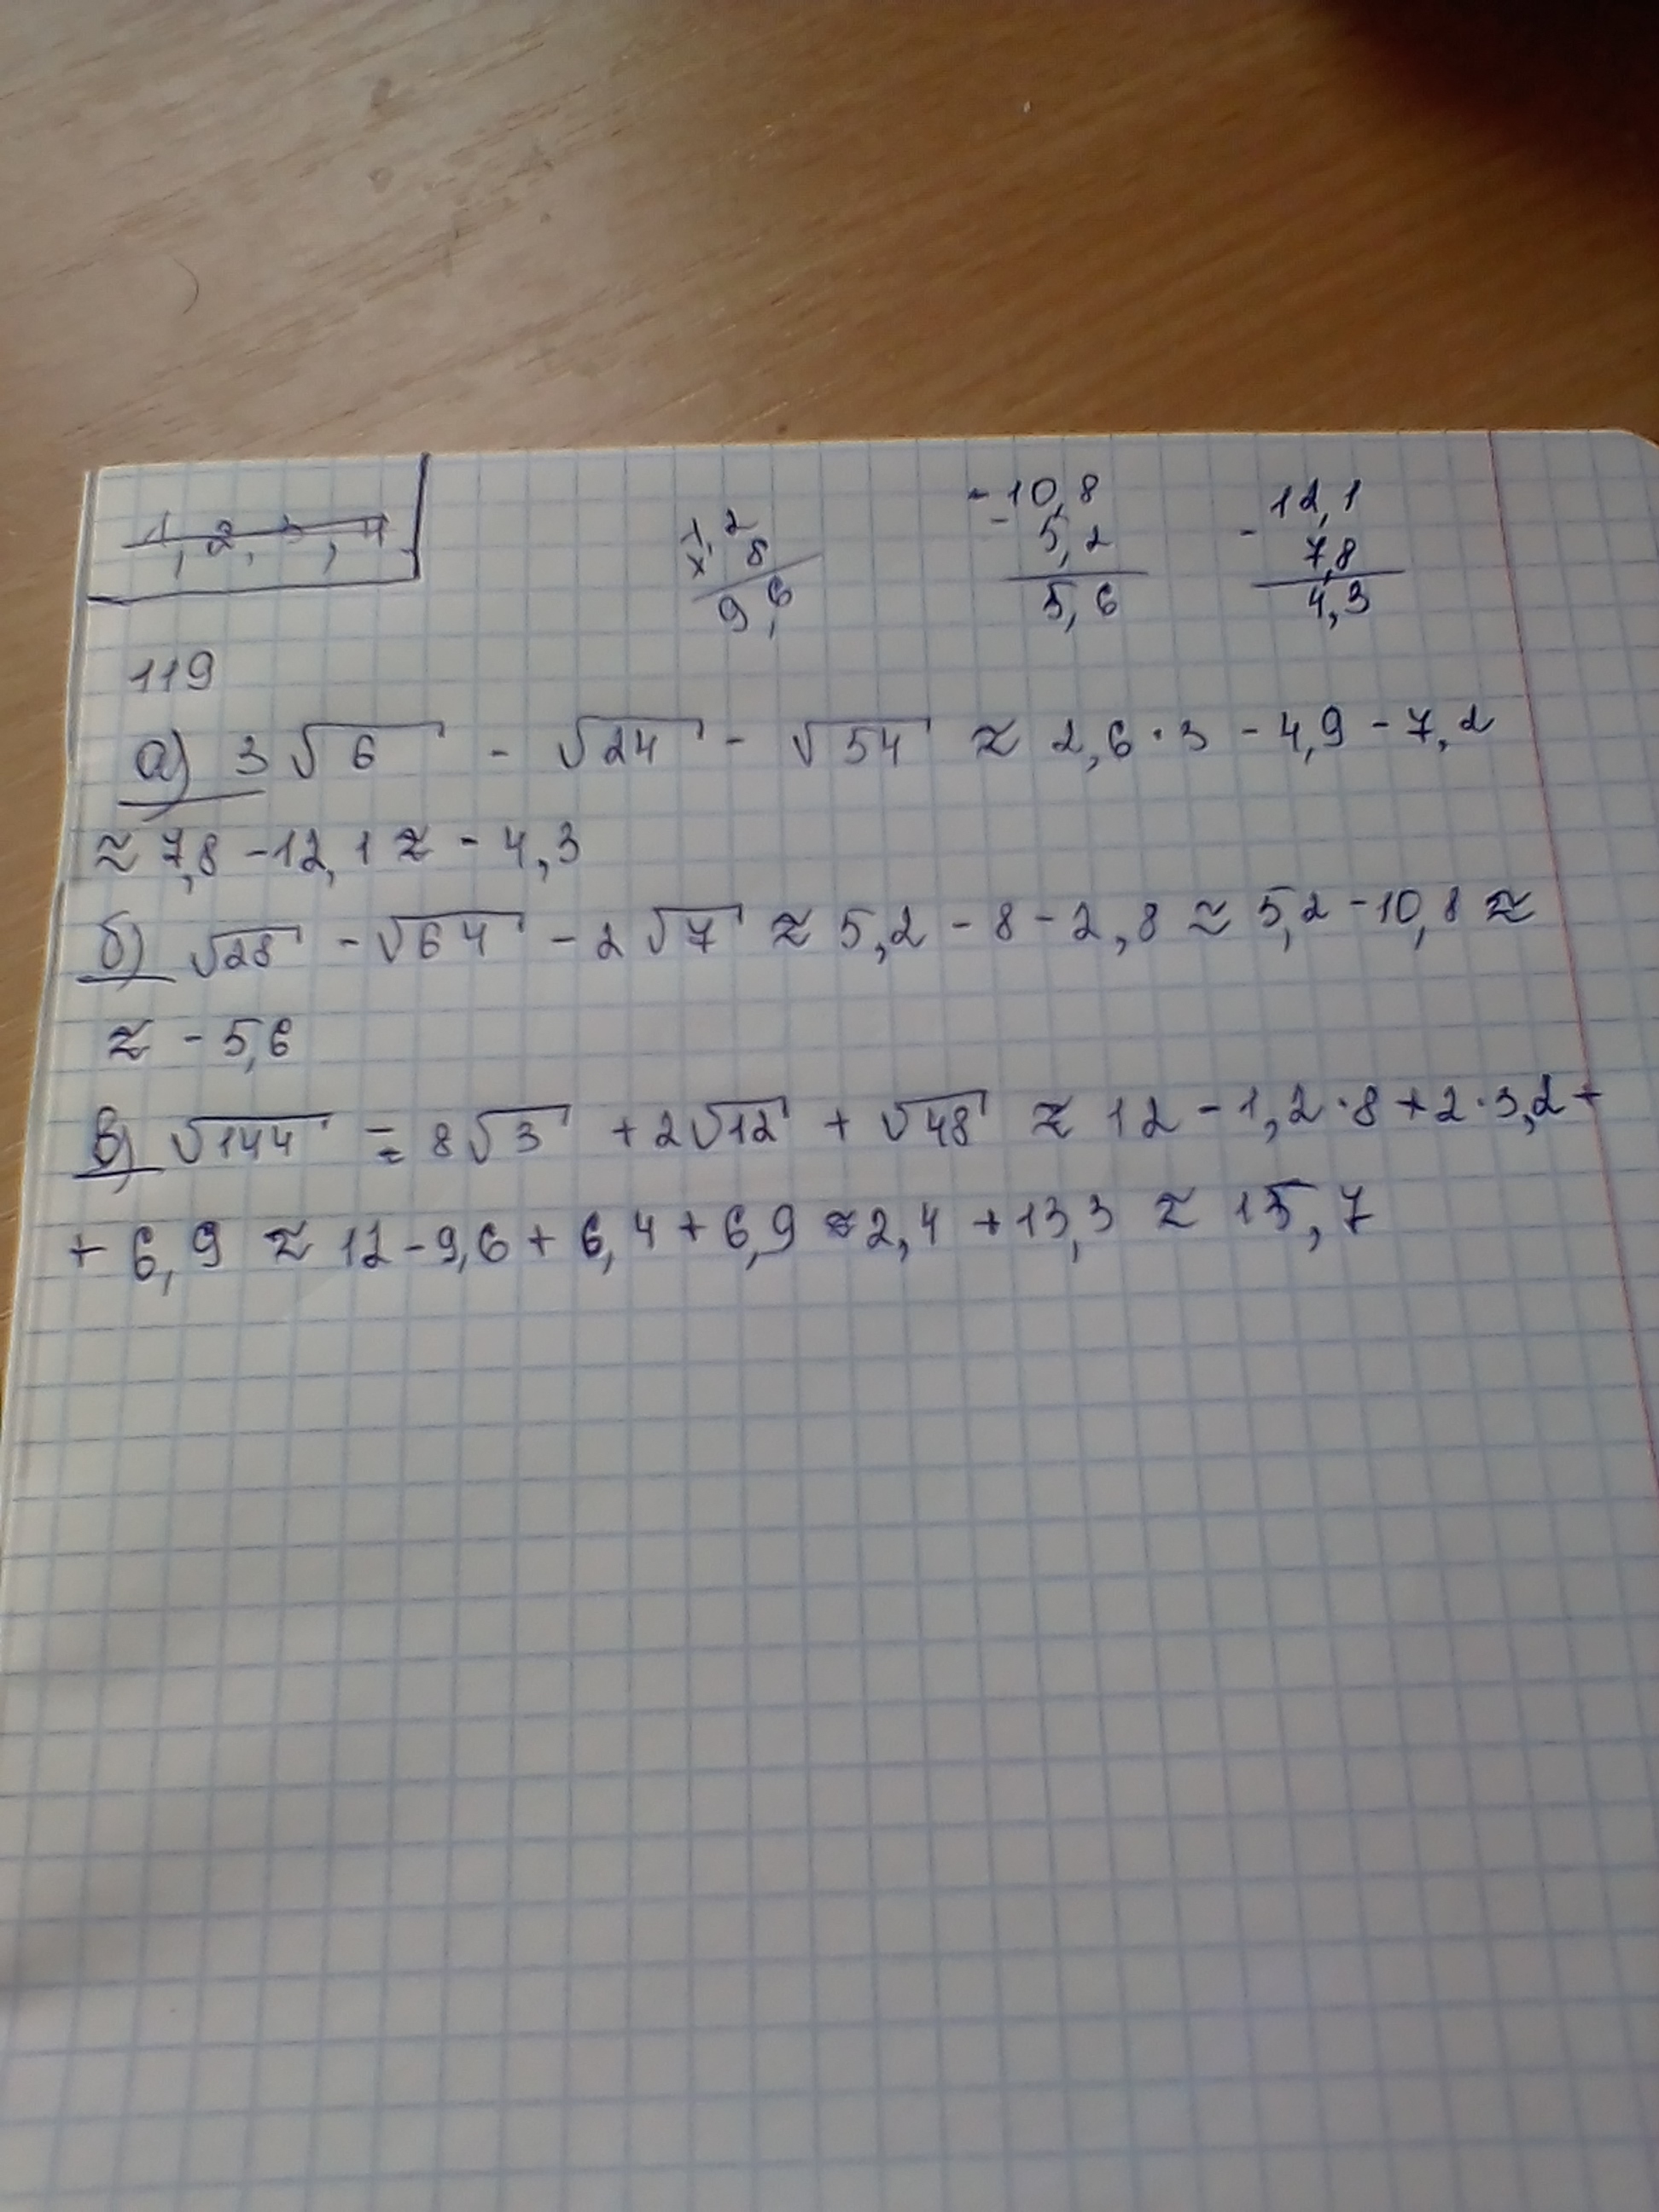 1, 2, 3, 4
1,2
× 8
9,6
- 10,8
- 5,2
5,6
- 12,1
7,8
4,3
119
а) 3√6 - √24 - √54 ≈ 2,6·3 - 4,9 - 7,2
≈ 7,8 - 12,1 ≈ - 4,3
б) √28 - √64 - 2√7 ≈ 5,2 - 8 - 2,8 ≈ 5,2 - 10,8 ≈
≈ - 5,6
в) √144 = 8√3 + 2√12 + √48 ≈ 12 - 1,2·8 + 2·3,2 +
+ 6,9 ≈ 12 - 9,6 + 6,4 + 6,9 ≈ 2,4 + 13,3 ≈ 15,7